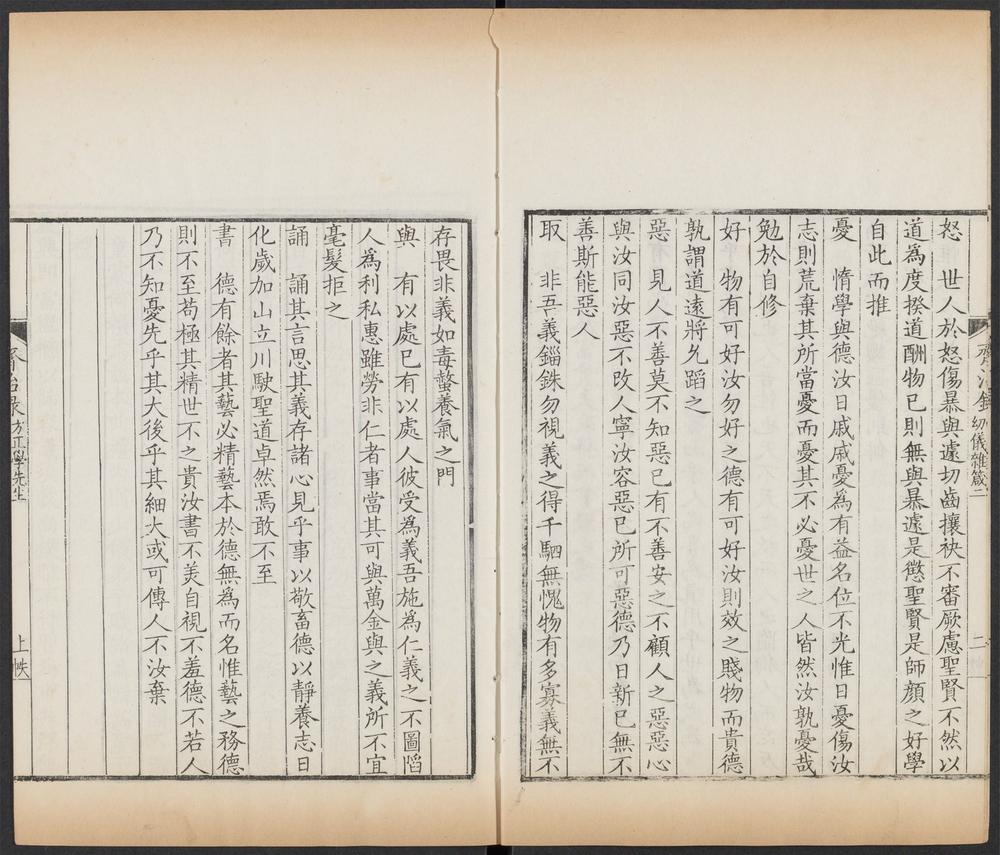 齊治錄 幼儀雜箴二 二
怒 世人於怒傷暴與遽切齒攘袂不審厥慮聖賢不然以
道為度揆道酬物已則無與暴遽是懲聖賢是師顏之好學
自此而推
憂 惰學與德汝日戚戚憂為有益名位不光惟日憂傷汝
志則荒棄其所當憂而憂其不必憂世之人皆然汝孰憂哉
勉於自修
好 物有可好汝勿好之德有可好汝則效之賤物而貴德
孰謂道遠將允蹈之
惡 見人不善莫不知惡已有不善安之不顧人之惡惡心
與汝同汝惡不改人寧汝容惡已所可惡德乃日新已無不
善斯能惡人
取 非吾義錙銖勿視義之得千駟無愧物有多寡義無不
存畏非義如毒螫養氣之門
與 有以處已有以處人彼受為義吾施為仁義之不圖㗖
人為利私惠雖勞非仁者事當其可與萬金與之義所不宜
毫髮拒之
誦 誦其言思其義存諸心見乎事以敬畜德以靜養志日
化歲加山立川駛聖道卓然焉敢不至
書 德有餘者其藝必精藝本於德無為而名惟藝之務德
則不至苟極其精世不之貴汝書不美自視不羞德不若人
乃不知憂先乎其大後乎其細大或可傳人不汝棄
齊治錄 方正學先生 上帙